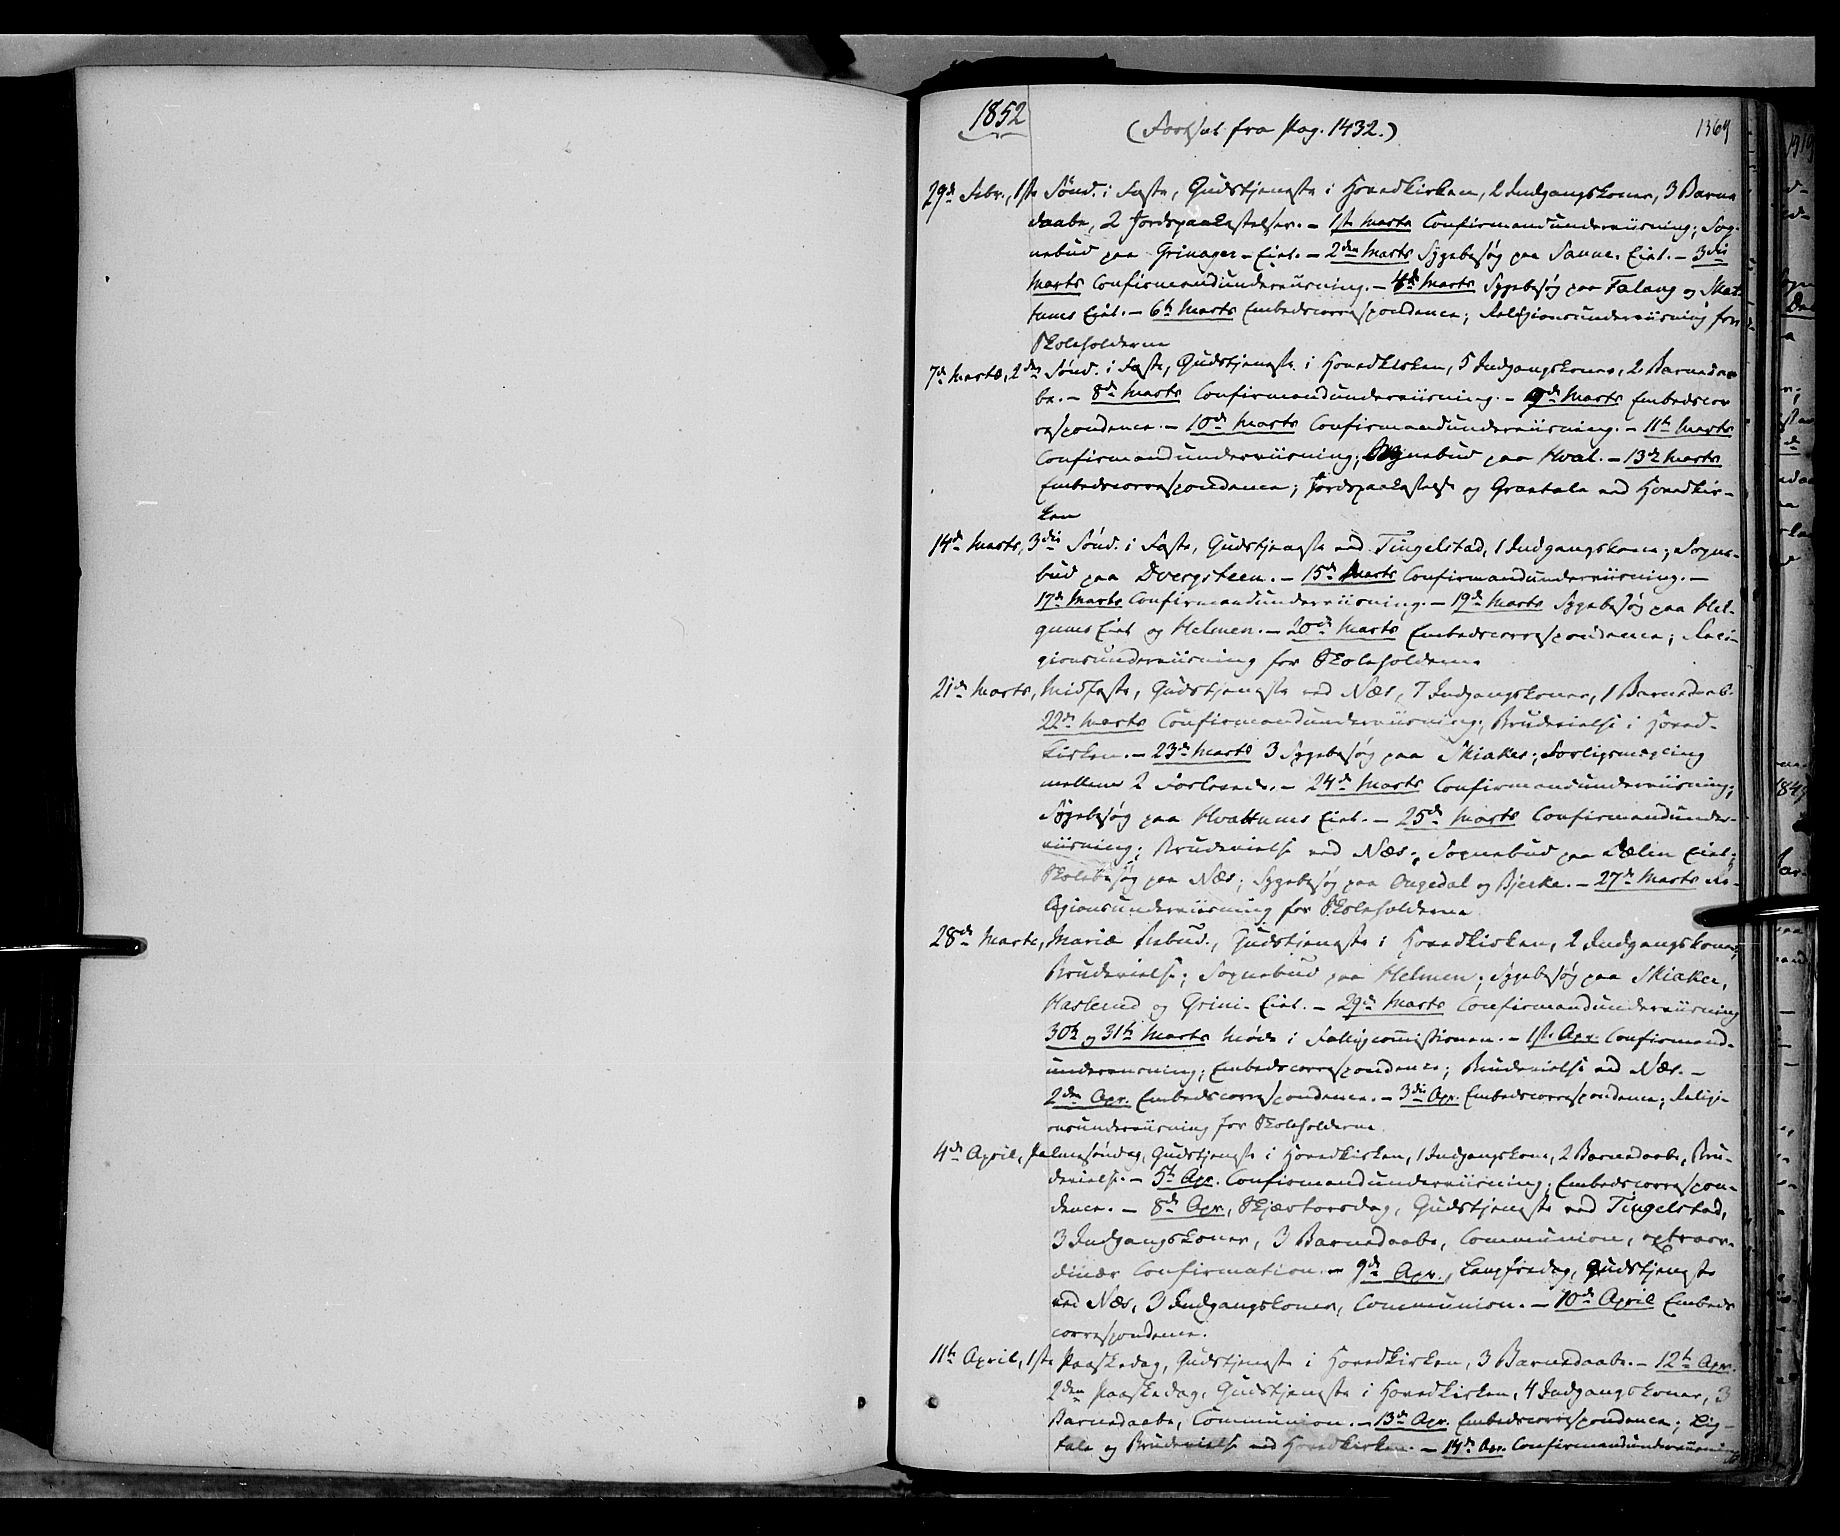 1852
(Fortsat fra Pag. 1432.)
29de Febr., 1ste Sønd. i Faste, Gudstjeneste i Hovedkirken, 2 Indgangskoner, 3 Barne
daabe, 2 Jordspaakastelser. – 1ste Marts Confirmandunderviisning; Sog-
nebud paa Grinager-Eiet. – 2den Marts Sygebesøg paa Sanne-Eiet. – 3die
Marts Confirmandunderviisning. – 4de Marts Sygebesøg paa Falang og Skat-
tums Eiet. – 6te Marts Embedscorrespondence; Religionsunderviisning for
Skoleholderne
7de Marts, 2den Sønd. i Faste, Gudstjeneste i Hovedkirken, 5 Indgangskoner, 2 Barnedaa-
be. – 8de Marts Confirmandunderviisning. – 9de Marts Embedscor
respondence. – 10de Marts Confirmandunderviisning. – 11te Marts
Confirmandunderviisning; Sognebud paa Hval. – 13de Marts
Embedscorrespondence; Jordspaakastelse og Gravtale ved Hovedkir-
ken
14de Marts, 3die Sønd. i Faste, Gudstjeneste ved Tingelstad, 1 Indgangskone; Sogne-
bud paa Dvergsteen. – 15de Marts Confirmandunderviisning. –
17de Marts Confirmandunderviisning. – 19de Marts Sygebesøg paa Hel-
gums Eiet og Helmen. – 20de Marts Embedscorrespondence; Reli-
gionsunderviisning for Skoleholderne
21de Marts, Midfaste, Gudstjeneste ved Næs, 7 Indgangskoner, 1 Barnedaab.
22de Marts Confirmandunderviisning; Brudevielse i Hoved-
kirken. – 23de Marts 3 Sygebesøg paa Skiaker; Forligsmægling
mellem 2 Forlovede. – 24de Marts Confirmandunderviisning;
Sygebesøg paa Hvattums Eiet. – 25de Marts Confirmandunder-
viisning; Brudevielse ved Næs; Sognebud paa Dælin Eiet;
Skolebesøg paa Næs; Sygebesøg paa Ongedal og Bjerke. – 27de Marts Re-
ligionsunderviisning for Skoleholderne
28de Marts, Mariæ Bebud., Gudstjeneste i Hovedkirken, 2 Indgangskoner,
Brudevielse; Sognebud paa Helmen; Sygebesøg paa Skiaker,
Haslerud og Grini-Eiet. – 29de Marts Confirmandunderviisning
30te og 31te Marts Møde i Fattigcommissionen. – 1ste Apr. Confirmand-
underviisning; Embedscorrespondence; Brudevielse ved Næs. –
2den Apr. Embedscorrespondence. – 3die Apr. Embedscorrespondence; Religi-
onsunderviisning for Skoleholderne
4de April, Palmesøndag, Gudstjeneste i Hovedkirken, 1 Indgangskone, 2 Barnedaabe, Bru-
devielse. – 5te Apr. Confirmandunderviisning; Embedscorrespon-
dence. – 8de Apr., Skjærtorsdag, Gudstjeneste ved Tingelstad,
3 Indgangskoner, 3 Barnedaabe, Communion, extraor-
dinær Confirmation. – 9de Apr., Langfredag, Gudstjeneste
ved Næs, 3 Indgangskoner, Communion. – 10de April Embeds
correspondence.
11te April, 1ste Paaskedag, Gudstjeneste i Hovedkirken, 3 Barnedaabe. – 12te Apr.
2den Paaskedag, Gudstjeneste i Hovedkirken, 4 Indgangskoner, 3
Barnedaabe, Communion. – 13de Apr. Embedscorrespondence; Lig-
tale og Brudevielse ved Hovedkirken. – 14de Apr. Confirmandunderviisning